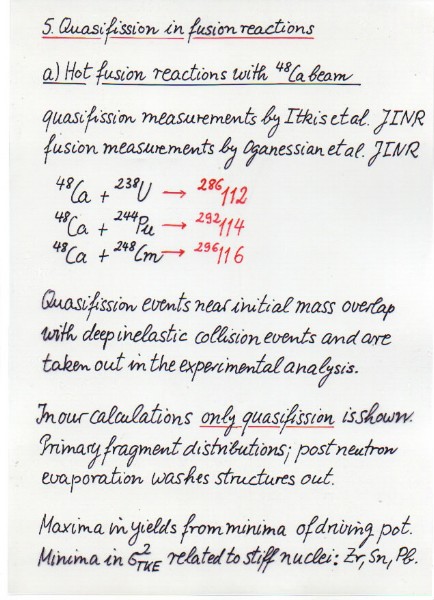 5. Quasifission in fusion reactions
a) Hot fusion reactions with ⁴⁸Ca beam
quasifission measurements by Itkis et al. JINR
fusion measurements by Oganessian et al. JINR
⁴⁸Ca + ²³⁸U → ²⁸⁶112
⁴⁸Ca + ²⁴⁴Pu → ²⁹²114
⁴⁸Ca + ²⁴⁸Cm → ²⁹⁶116
Quasifission events near initial mass overlap
with deep inelastic collision events and are
taken out in the experimental analysis.
In our calculations only quasifission is shown.
Primary fragment distributions; post neutron
evaporation washes structures out.
Maxima in yields from minima of driving pot.
Minima in σ²_TKE related to stiff nuclei: Zr, Sn, Pb.